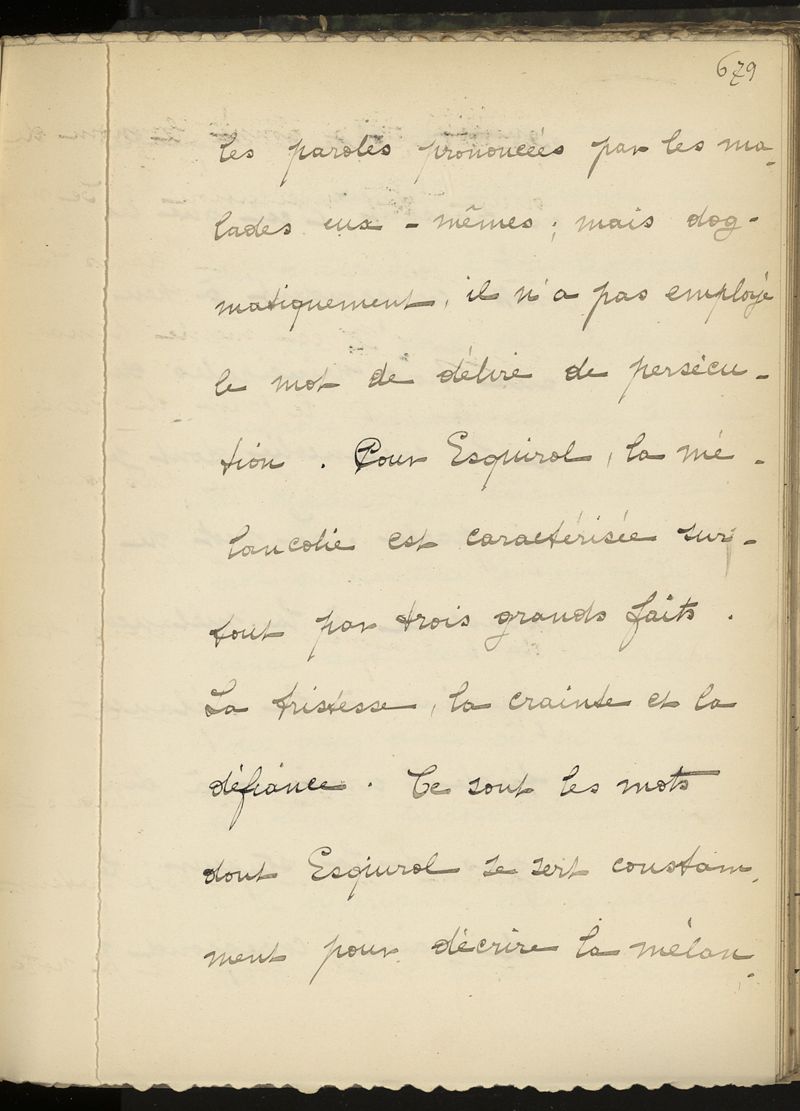 679
les paroles prononcées par les ma-
lades eux-mêmes; mais dog-
matiquement, il n'a pas employé
le mot de délire de persécu-
tion. Pour Esquirol, la mé-
lancolie est caractérisée sur-
tout par trois grands faits.
La tristesse, la crainte et la
défiance. Ce sont les mots
dont Esquirol se sert constam-
ment pour décrire la mélan-